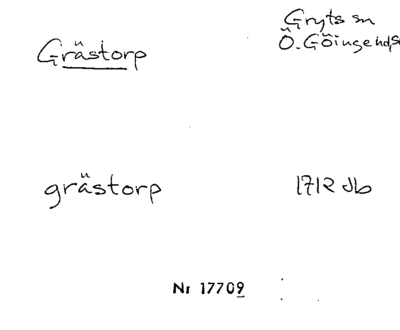 Grästorp
Gryts sn
Ö. Göinge hd, Sk
grästorp
1712 db
Nr 17709